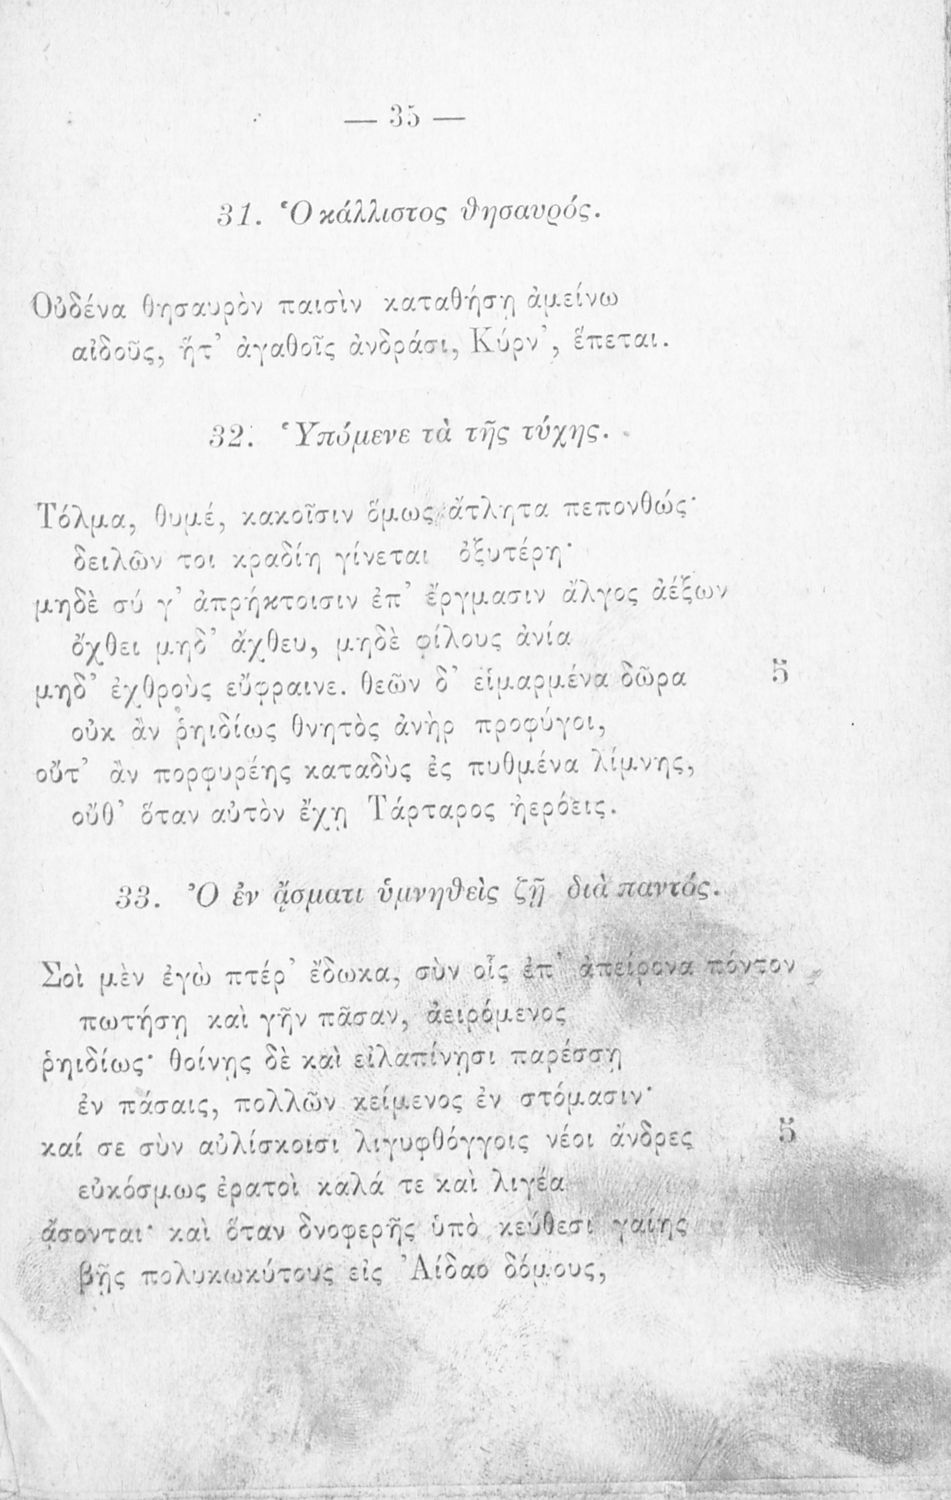 — 35 —
31. Ὁ κάλλιστος θησαυρός.
Οὐδένα θησαυρὸν παισὶν καταθήσῃ ἀμείνω
αἰδοῦς, ἥτ' ἀγαθοῖς ἀνδράσι, Κύρν', ἕπεται.
32. Ὑπόμενε τὰ τῆς τύχης.
Τόλμα, θυμέ, κακοῖσιν ὅμως ἄτλητα πεπονθώς·
δειλῶν τοι κραδίη γίνεται ὀξυτέρη·
μηδὲ σύ γ' ἀπρήκτοισιν ἐπ' ἔργμασιν ἄλγος ἀέξων
ὄχθει μηδ' ἄχθευ, μηδὲ φίλους ἀνία
μηδ' ἐχθροὺς εὔφραινε. θεῶν δ' εἱμαρμένα δῶρα 5
οὐκ ἂν ῥηιδίως θνητὸς ἀνὴρ προφύγοι,
οὔτ' ἂν πορφυρέης καταδὺς ἐς πυθμένα λίμνης,
οὔθ' ὅταν αὐτὸν ἔχῃ Τάρταρος ἠερόεις.
33. Ὁ ἐν ᾄσματι ὑμνηθεὶς ζῇ διὰ παντός.
Σοὶ μὲν ἐγὼ πτέρ' ἔδωκα, σὺν οἷς ἐπ' ἀπείρονα πόντον
πωτήσῃ καὶ γῆν πᾶσαν, ἀειρόμενος
ῥηιδίως· θοίνῃς δὲ καὶ εἰλαπίνῃσι παρέσσῃ
ἐν πάσαις, πολλῶν κείμενος ἐν στόμασιν·
καί σε σὺν αὐλίσκοισι λιγυφθόγγοις νέοι ἄνδρες 5
εὐκόσμως ἐρατοὶ καλά τε καὶ λιγέα
ᾄσονται· καὶ ὅταν δνοφερῆς ὑπὸ κεύθεσι γαίης
βῇς πολυκωκύτους εἰς Ἀίδαο δόμους,